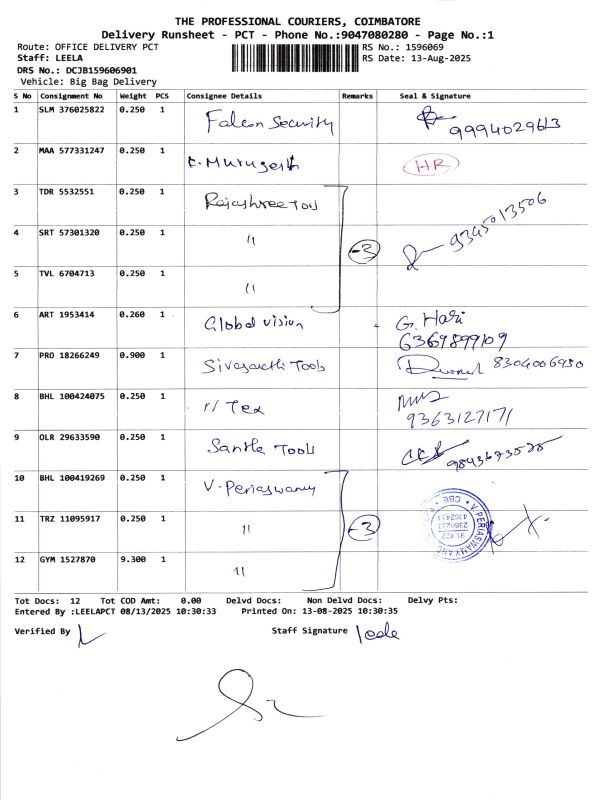 THE PROFESSIONAL COURIERS, COIMBATORE
Delivery Runsheet - PCT - Phone No.:9047080280 - Page No.:1
Route: OFFICE DELIVERY PCT RS No.: 1596069
Staff: LEELA RS Date: 13-Aug-2025
DRS No.: DCJB159606901
Vehicle: Big Bag Delivery
S No Consignment No Weight PCS Consignee Details Remarks Seal & Signature
1 SLM 376025822 0.250 1 Falcon Security 9994029613
2 MAA 577331247 0.250 1 K. Murugesh HR
3 TDR 5532551 0.250 1 Rajashree Tools
4 SRT 57301320 0.250 1 11 -3 9345013506
5 TVL 6704713 0.250 1 11
6 ART 1953414 0.260 1 Global vision G. Hari
6369899109
7 PRO 18266249 0.900 1 Sivasakthi Tools 8304006930
8 BHL 100424075 0.250 1 r/ Tex
9363127171
9 OLR 29633590 0.250 1 Tools 9843673528
10 BHL 100419269 0.250 1 V. Periaswamy
11 TRZ 11095917 0.250 1 11 -3
12 GYM 1527870 9.300 1 11
V. PERIASWAMY AND
CBE
91 422
2390233
4382434
Tot Docs: 12 Tot COD Amt: 0.00 Delvd Docs: Non Delvd Docs: Delvy Pts:
Entered By :LEELAPCT 08/13/2025 10:30:33 Printed On: 13-08-2025 10:30:35
Verified By Staff Signature leela